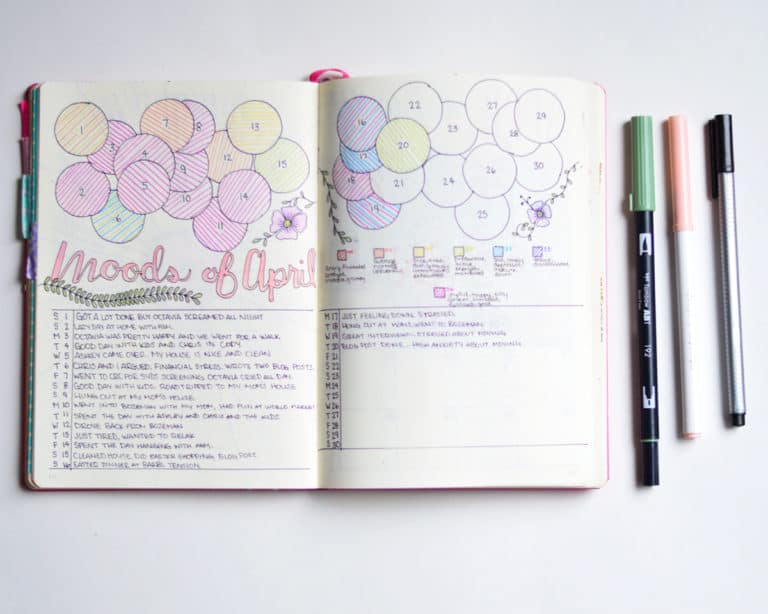 1
7
8
13
3
4
12
15
9
2
5
10
14
6
11
Moods of April
S 1 GOT A LOT DONE BUT OCTAVIA SCREAMED ALL NIGHT
S 2 LAZY DAY AT HOME WITH FAM.
M 3 OCTAVIA WAS PRETTY HAPPY AND WE WENT FOR A WALK
T 4 GOOD DAY WITH KIDS AND CHRIS IN CODY
W 5 ASHLEY CAME OVER. MY HOUSE IS NICE AND CLEAN
T 6 CHRIS AND I ARGUED, FINANCIAL STRESS, WROTE TWO BLOG POSTS
F 7 WENT TO CRC FOR SHIS SCREENING OCTAVIA CRIED ALL DAY
S 8 GOOD DAY WITH KIDS. ROADTRIPPED TO MY MOM'S HOUSE
S 9 HUNG OUT AT MY MOM'S HOUSE
M 10 WENT INTO BOZEMAN WITH MY MOM, HAD FUN AT WORLD MARKET
T 11 SPENT THE DAY WITH ASHLEY AND CHRIS AND THE KIDS
W 12 DROVE BACK FROM BOZEMAN
T 13 JUST TIRED, WANTED TO RELAX
F 14 SPENT THE DAY HANGING WITH FAM.
S 15 CLEANED HOUSE, DID EASTER SHOPPING, BLOG POST
S 16 EASTER DINNER AT BARB'S. TENSION
16
22
27
29
23
28
20
17
30
18
21
24
26
19
25
M 17 JUST FEELING DOWN, STRESSED
T 18 HUNG OUT AT MOMS, WENT TO BOZEMAN
W 19 GREAT INTERVIEW, STRESSED ABOUT MOVING
T 20 BLOG POST DONE - HIGH ANXIETY ABOUT MOVING
F 21
S 22
S 23
M 24
T 25
W 26
T 27
F 28
S 29
S 30
TOMBOW
ABT
192